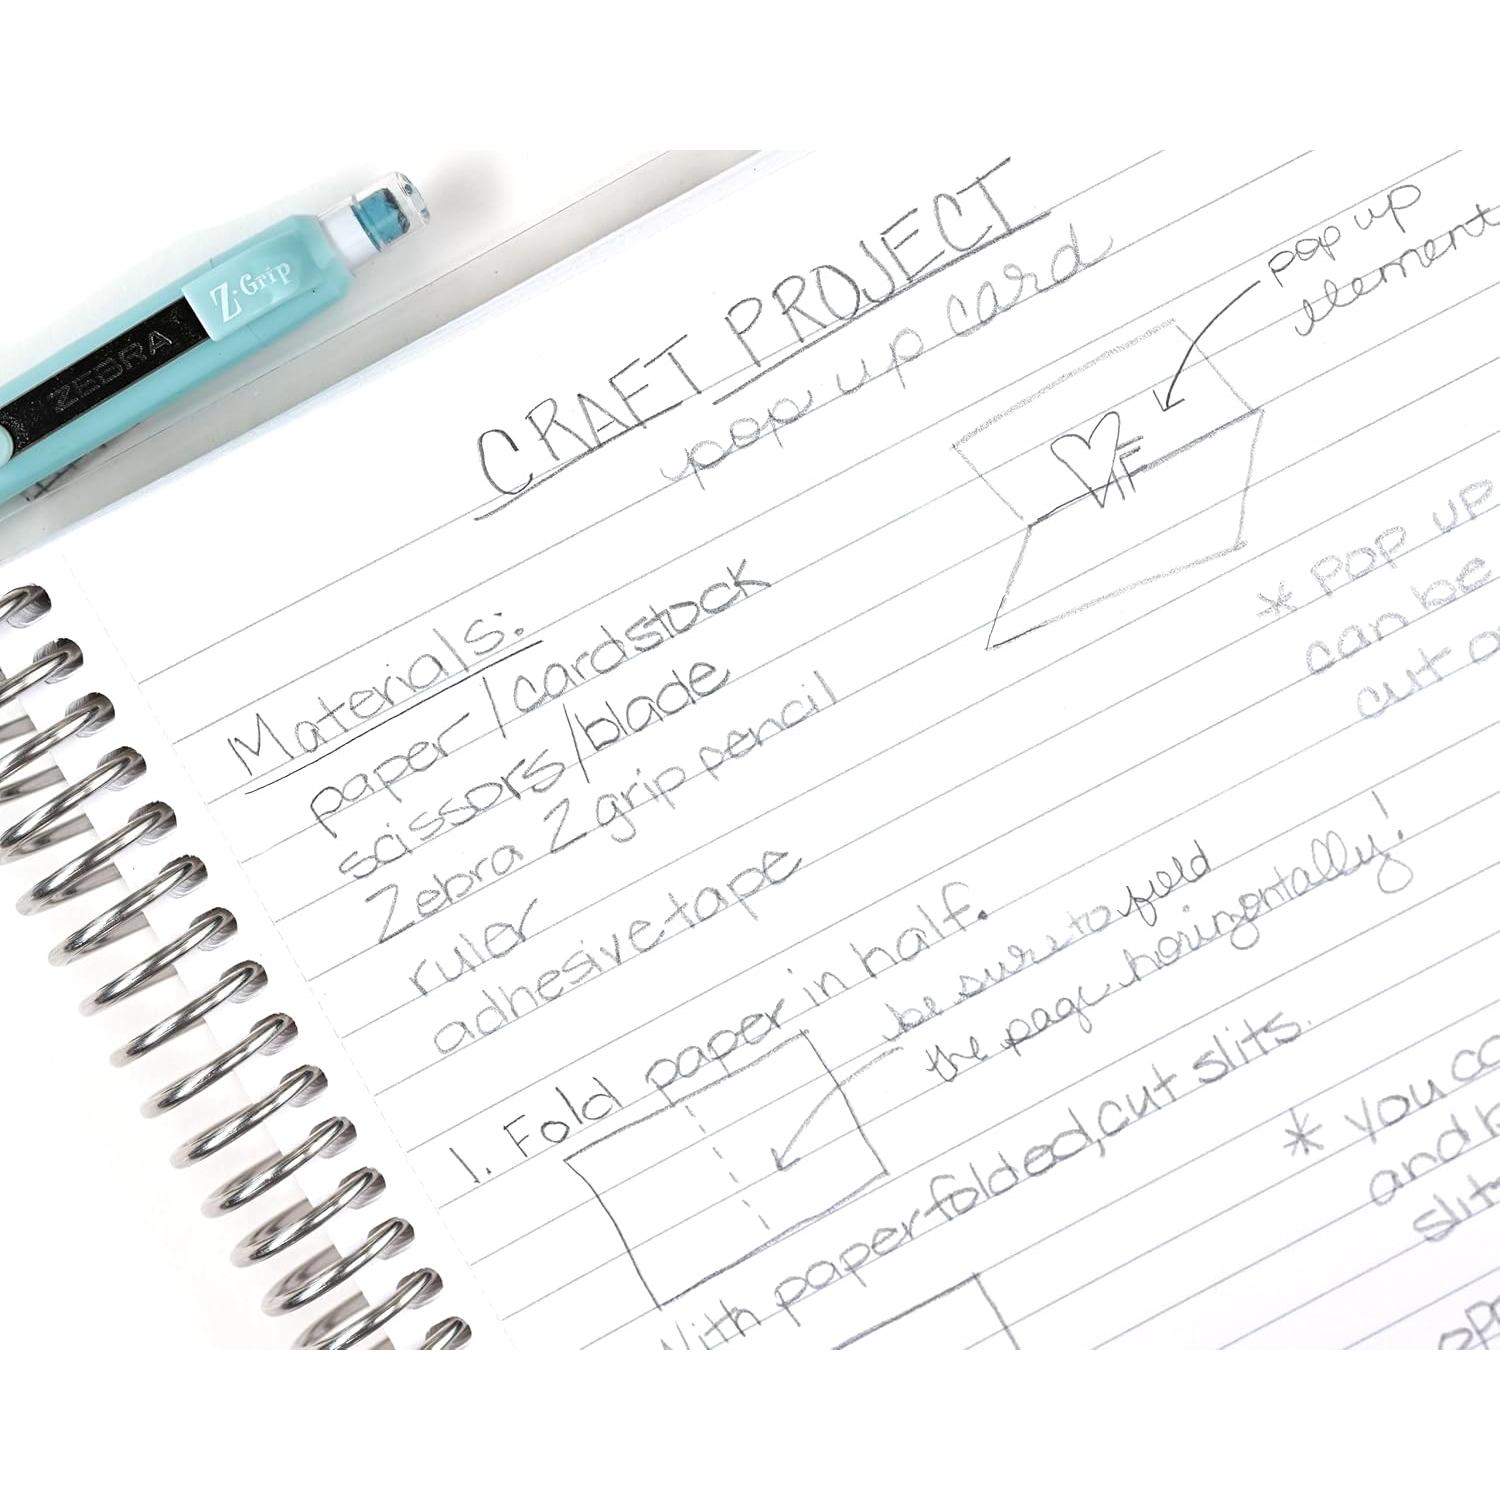 Z-Grip
ZEBRA
CRAFT PROJECT
pop up card
pop up
element
Materials:
paper/cardstock
scissors/blade
Zebra Z grip pencil
ruler
adhesive tape
* POP UP
can be
cut
1. Fold paper in half.
be sure to fold
the page horizontally!
With paper folded, cut slits.
* you
and